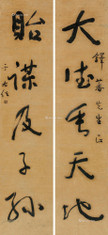 大德垂天地
鐸菴先生正
貽謀及子孫
于右任